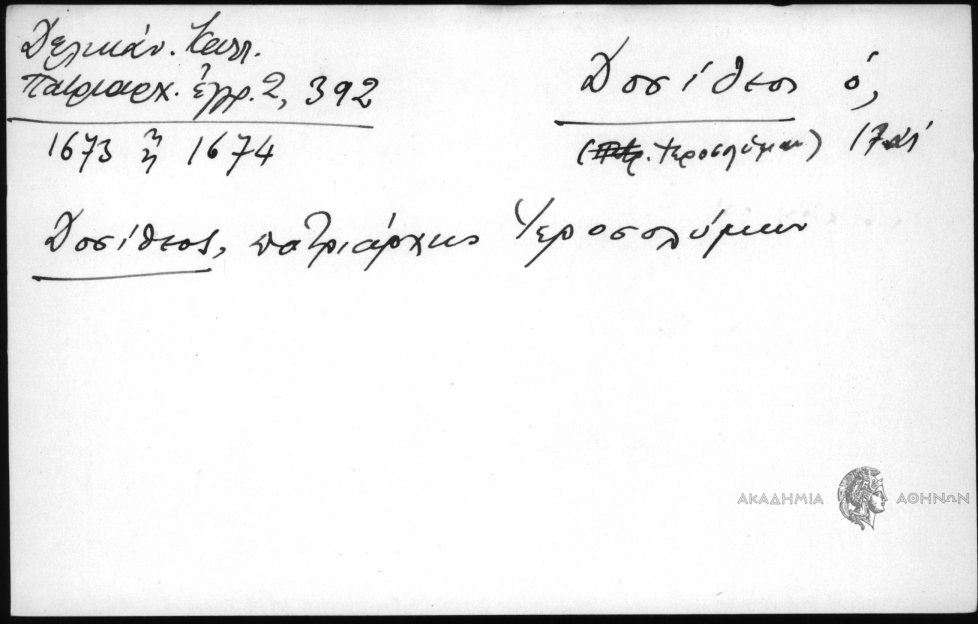 Δελικάν. Καλλ.
Πατριαρχ. ἔγγρ. 2, 392
1673 ἢ 1674
Δοσίθεος ὁ,
Ἱεροσολύμων) 17
Δοσίθεος, πατριάρχης Ἱεροσολύμων
ΑΚΑΔΗΜΙΑ ΑΘΗΝΩΝ